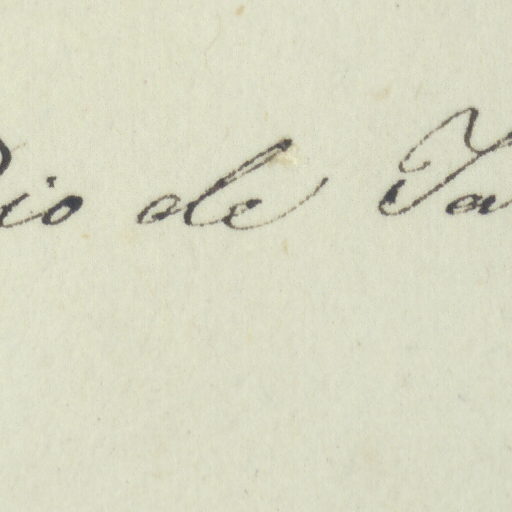 Rio de Ja